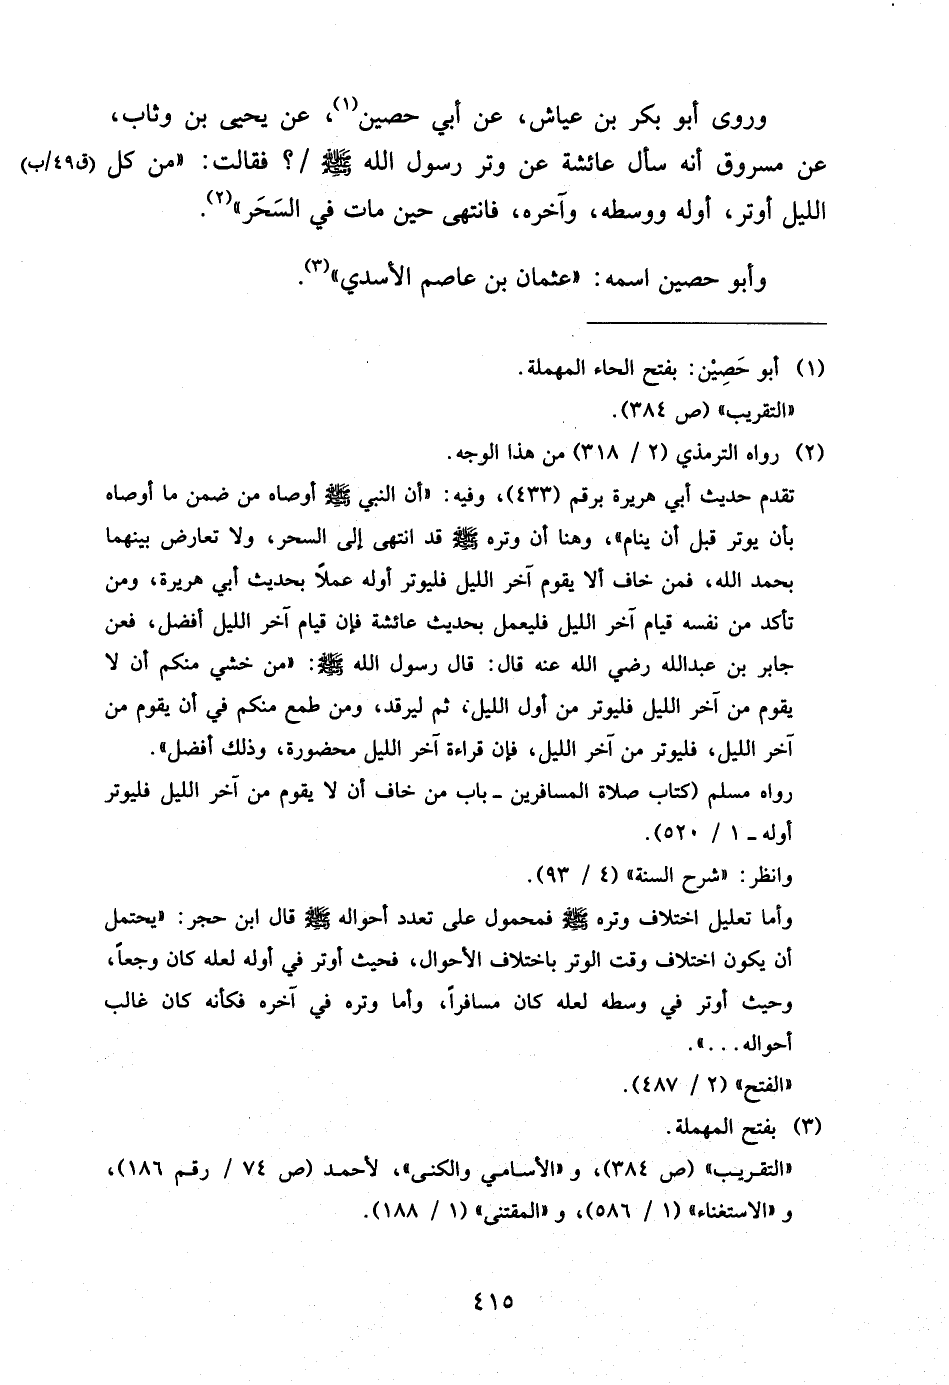 وروى أبو بكر بن عياش، عن أبي حصين(١)، عن يحيى بن وثاب،
عن مسروق أنه سأل عائشة عن وتر رسول الله ﷺ /؟ فقالت: «من كل (ق٤٩/ب)
الليل أوتر، أوله ووسطه، وآخره، فانتهى حين مات في السَحَر»(٢).
وأبو حصين اسمه: «عثمان بن عاصم الأسدي»(٣).
(١) أبو حَصِيْن: بفتح الحاء المهملة.
«التقريب» (ص ٣٨٤).
(٢) رواه الترمذي (٢ / ٣١٨) من هذا الوجه.
تقدم حديث أبي هريرة برقم (٤٣٣)، وفيه: «أن النبي ﷺ أوصاه من ضمن ما أوصاه
بأن يوتر قبل أن ينام»، وهنا أن وتره ﷺ قد انتهى إلى السحر، ولا تعارض بينهما
بحمد الله، فمن خاف ألا يقوم آخر الليل فليوتر أوله عملاً بحديث أبي هريرة، ومن
تأكد من نفسه قيام آخر الليل فليعمل بحديث عائشة فإن قيام آخر الليل أفضل، فعن
جابر بن عبدالله رضي الله عنه قال: قال رسول الله ﷺ: «من خشي منكم أن لا
يقوم من آخر الليل فليوتر من أول الليل، ثم ليرقد، ومن طمع منكم في أن يقوم من
آخر الليل، فليوتر من آخر الليل، فإن قراءة آخر الليل محضورة، وذلك أفضل».
رواه مسلم (كتاب صلاة المسافرين ـ باب من خاف أن لا يقوم من آخر الليل فليوتر
أوله ـ ١ / ٥٢٠).
وانظر: «شرح السنة» (٤ / ٩٣).
وأما تعليل اختلاف وتره ﷺ فمحمول على تعدد أحواله ﷺ قال ابن حجر: «يحتمل
أن يكون اختلاف وقت الوتر باختلاف الأحوال، فحيث أوتر في أوله لعله كان وجعاً،
وحيث أوتر في وسطه لعله كان مسافراً، وأما وتره في آخره فكأنه كان غالب
أحواله...».
«الفتح» (٢ / ٤٨٧).
(٣) بفتح المهملة.
«التقريب» (ص ٣٨٤)، و «الأسامي والكنى»، لأحمد (ص ٧٤ / رقم ١٨٦)،
و «الاستغناء» (١ / ٥٨٦)، و «المقتنى» (١ / ١٨٨).
٤١٥